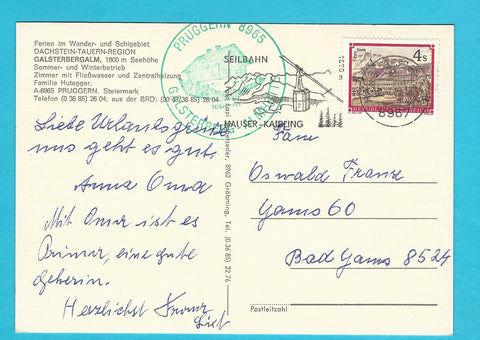 Ferien im Wander- und Schigebiet
DACHSTEIN-TAUERN-REGION
GALSTERBERGALM, 1800 m Seehöhe
Sommer- und Winterbetrieb
Zimmer mit Fließwasser und Zentralheizung
Familie Hutegger,
A-8965 PRUGGERN, Steiermark
Telefon (0 36 85) 26 04, aus der BRD: (00 43/36 85) 26 04
PRUGGERN 8965
SEILBAHN
HAUSER-KAIBLING
4 s
8967
Liebe Urlaubsgrüße
uns geht es gut.
Anna Oma
Mit Omar ist es
Prima, eine gute
geherin.
Herzlichst
8962 Gröbming, Tel. (0 36 85) 22 76
Fam
Oswald Franz
Gams 60
Bad Gams 8524
Postleitzahl